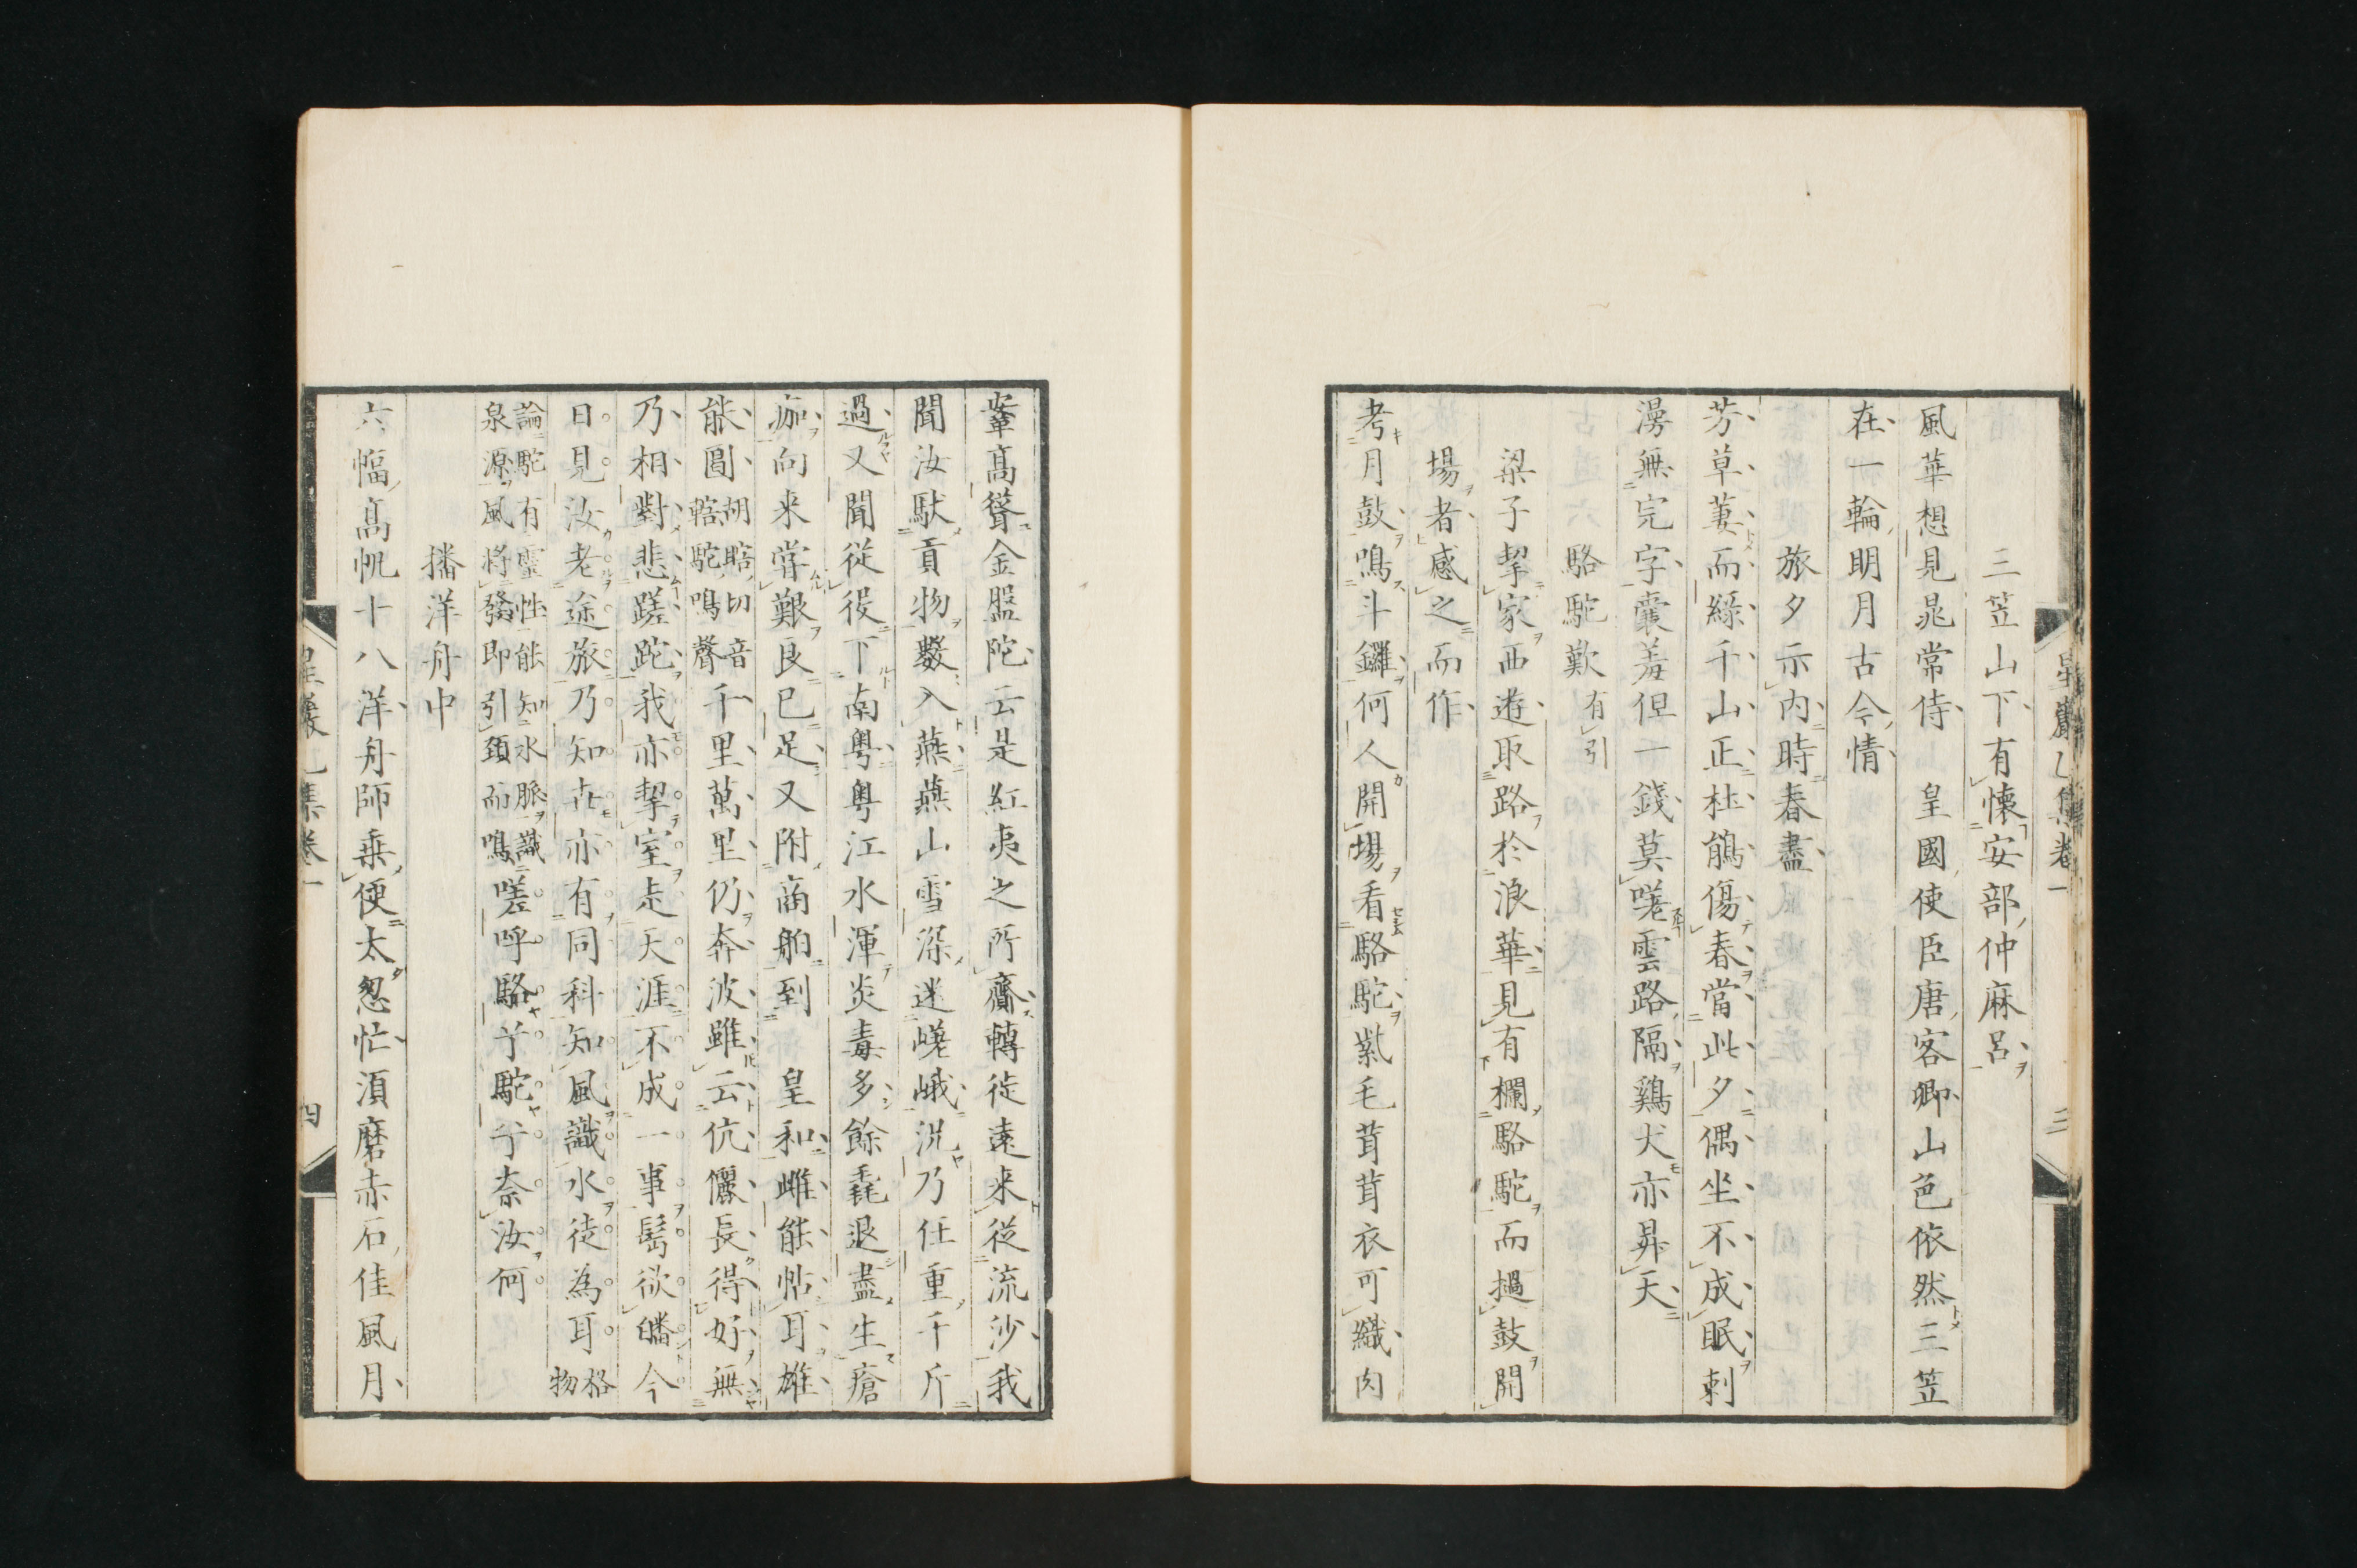 星巖乙集卷一　三
三笠山下有懷安部仲麻呂
風華想見晁常侍　皇國使臣唐客卿山色依然三笠
在一輪明月古今情
旅夕示內時春盡
芳草萋而綠千山正杜鵑傷春當此夕偶坐不成眠刺
漫無完字囊羞但一錢莫嗟雲路隔鷄犬亦昇天
駱駝歎有引
梁子挈家西遊取路於浪華見有欄駱駝而撾鼓開
場者感之而作
考月鼓鳴斗鑼何人開場看駱駝紫毛茸茸衣可織肉
鞌髙聳金盤陀云是紅夷之所齎轉徙遠来從流沙我
聞汝馱貢物數入燕燕山雪深迷嵯峨況乃任重千斤
過又聞從役下南粤粤江水渾炎毒多餘毳退盡生瘡
痂向来嘗艱良已足又附商舶到　皇和雌能帖耳雄
能圔胡瞎切音轄駝鳴聲千里萬里仍奔波雖云伉儷長得好無
乃相對悲蹉跎我亦挈室走天涯不成一事髩欲皤今
日見汝老途旅乃知卋亦有同科知風識水徒為耳格物
論駝有靈性能知水脈識泉源風將發即引頸而鳴嗟呼駱兮駝兮奈汝何
播洋舟中
六幅髙帆十八洋舟師乗便太怱忙湏磨赤石佳風月
星巖乙集卷一　四